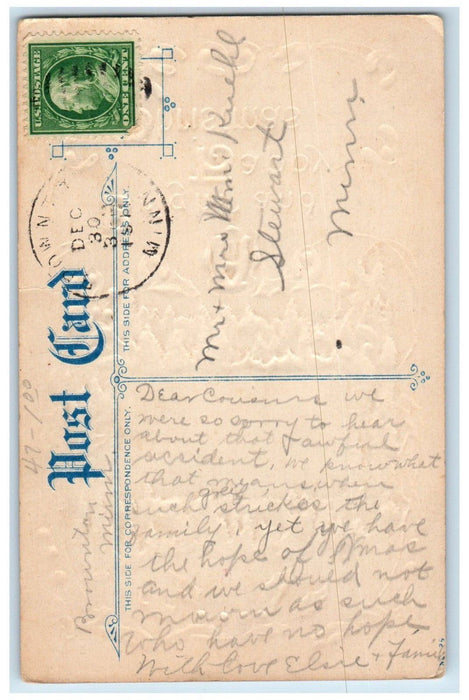 U.S. POSTAGE
ONE CENT
DEC
30
3
MINN
Post Card
THIS SIDE FOR ADDRESS ONLY.
THIS SIDE FOR CORRESPONDENCE ONLY.
Mr & Mrs Wm Kuehl
Stewart
Minn.
47-100
Brownton
Minn
Dear Cousins we
were so sorry to hear
about that awful
accident, we know what
that means, when
such grief strickes the
family, yet we have
the hope of Xmas
and we should not
mourn as such
who have no hope
With love Elsie & Family